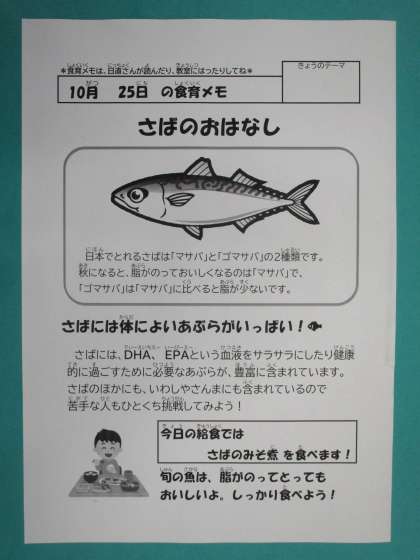 ＊食育メモは、日直さんが読んだり、教室にはったりしてね＊
きょうのテーマ
10月　25日　の食育メモ
さばのおはなし
日本でとれるさばは「マサバ」と「ゴマサバ」の2種類です。
秋になると、脂がのっておいしくなるのは「マサバ」で、
「ゴマサバ」は「マサバ」に比べると脂が少ないです。
さばには体によいあぶらがいっぱい！
さばには、DHA、EPAという血液をサラサラにしたり健康
的に過ごすために必要なあぶらが、豊富に含まれています。
さばのほかにも、いわしやさんまにも含まれているので
苦手な人もひとくち挑戦してみよう！
今日の給食では
さばのみそ煮 を食べます！
旬の魚は、脂がのってとっても
おいしいよ。しっかり食べよう！